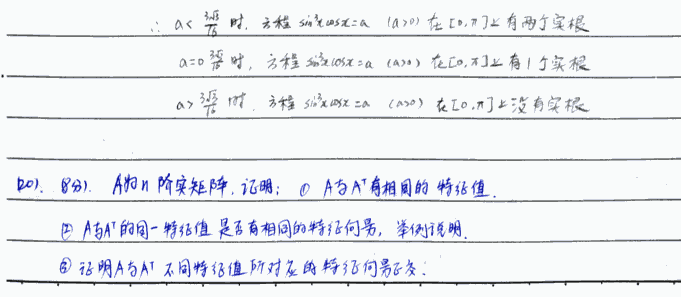 ∴ a < 3√3/16 时, 方程 sin³x cosx = a (a>0) 在[0,π]上有两个实根
a = 3√3/16 时, 方程 sin³x cosx = a (a>0) 在[0,π]上有1个实根
a > 3√3/16 时, 方程 sin³x cosx = a (a>0) 在[0,π]上没有实根
(20). (8分). A为n阶实矩阵, 证明: ① A与Aᵀ有相同的特征值.
② A与Aᵀ的同一特征值是否有相同的特征向量, 举例说明.
③ 证明A与Aᵀ不同特征值所对应的特征向量正交.